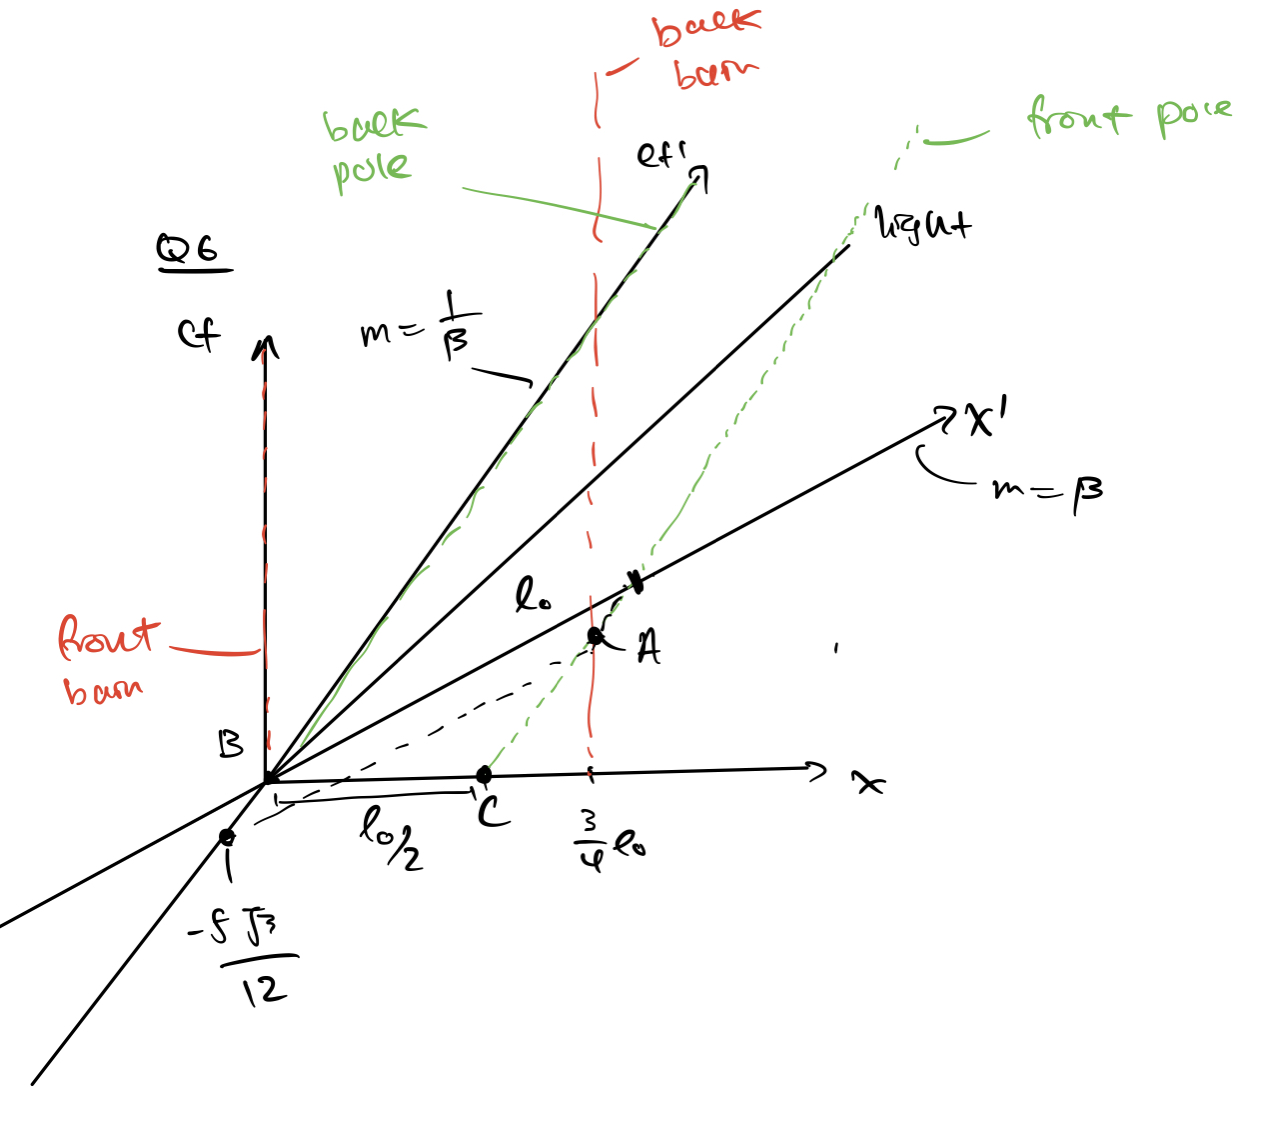 back
barn
back
pole
front pole
ct'
light
Q6
ct
m = 1/β
x'
m = β
l₀
A
front
barn
B
x
l₀/2
C
3/4 l₀
-5√3/12